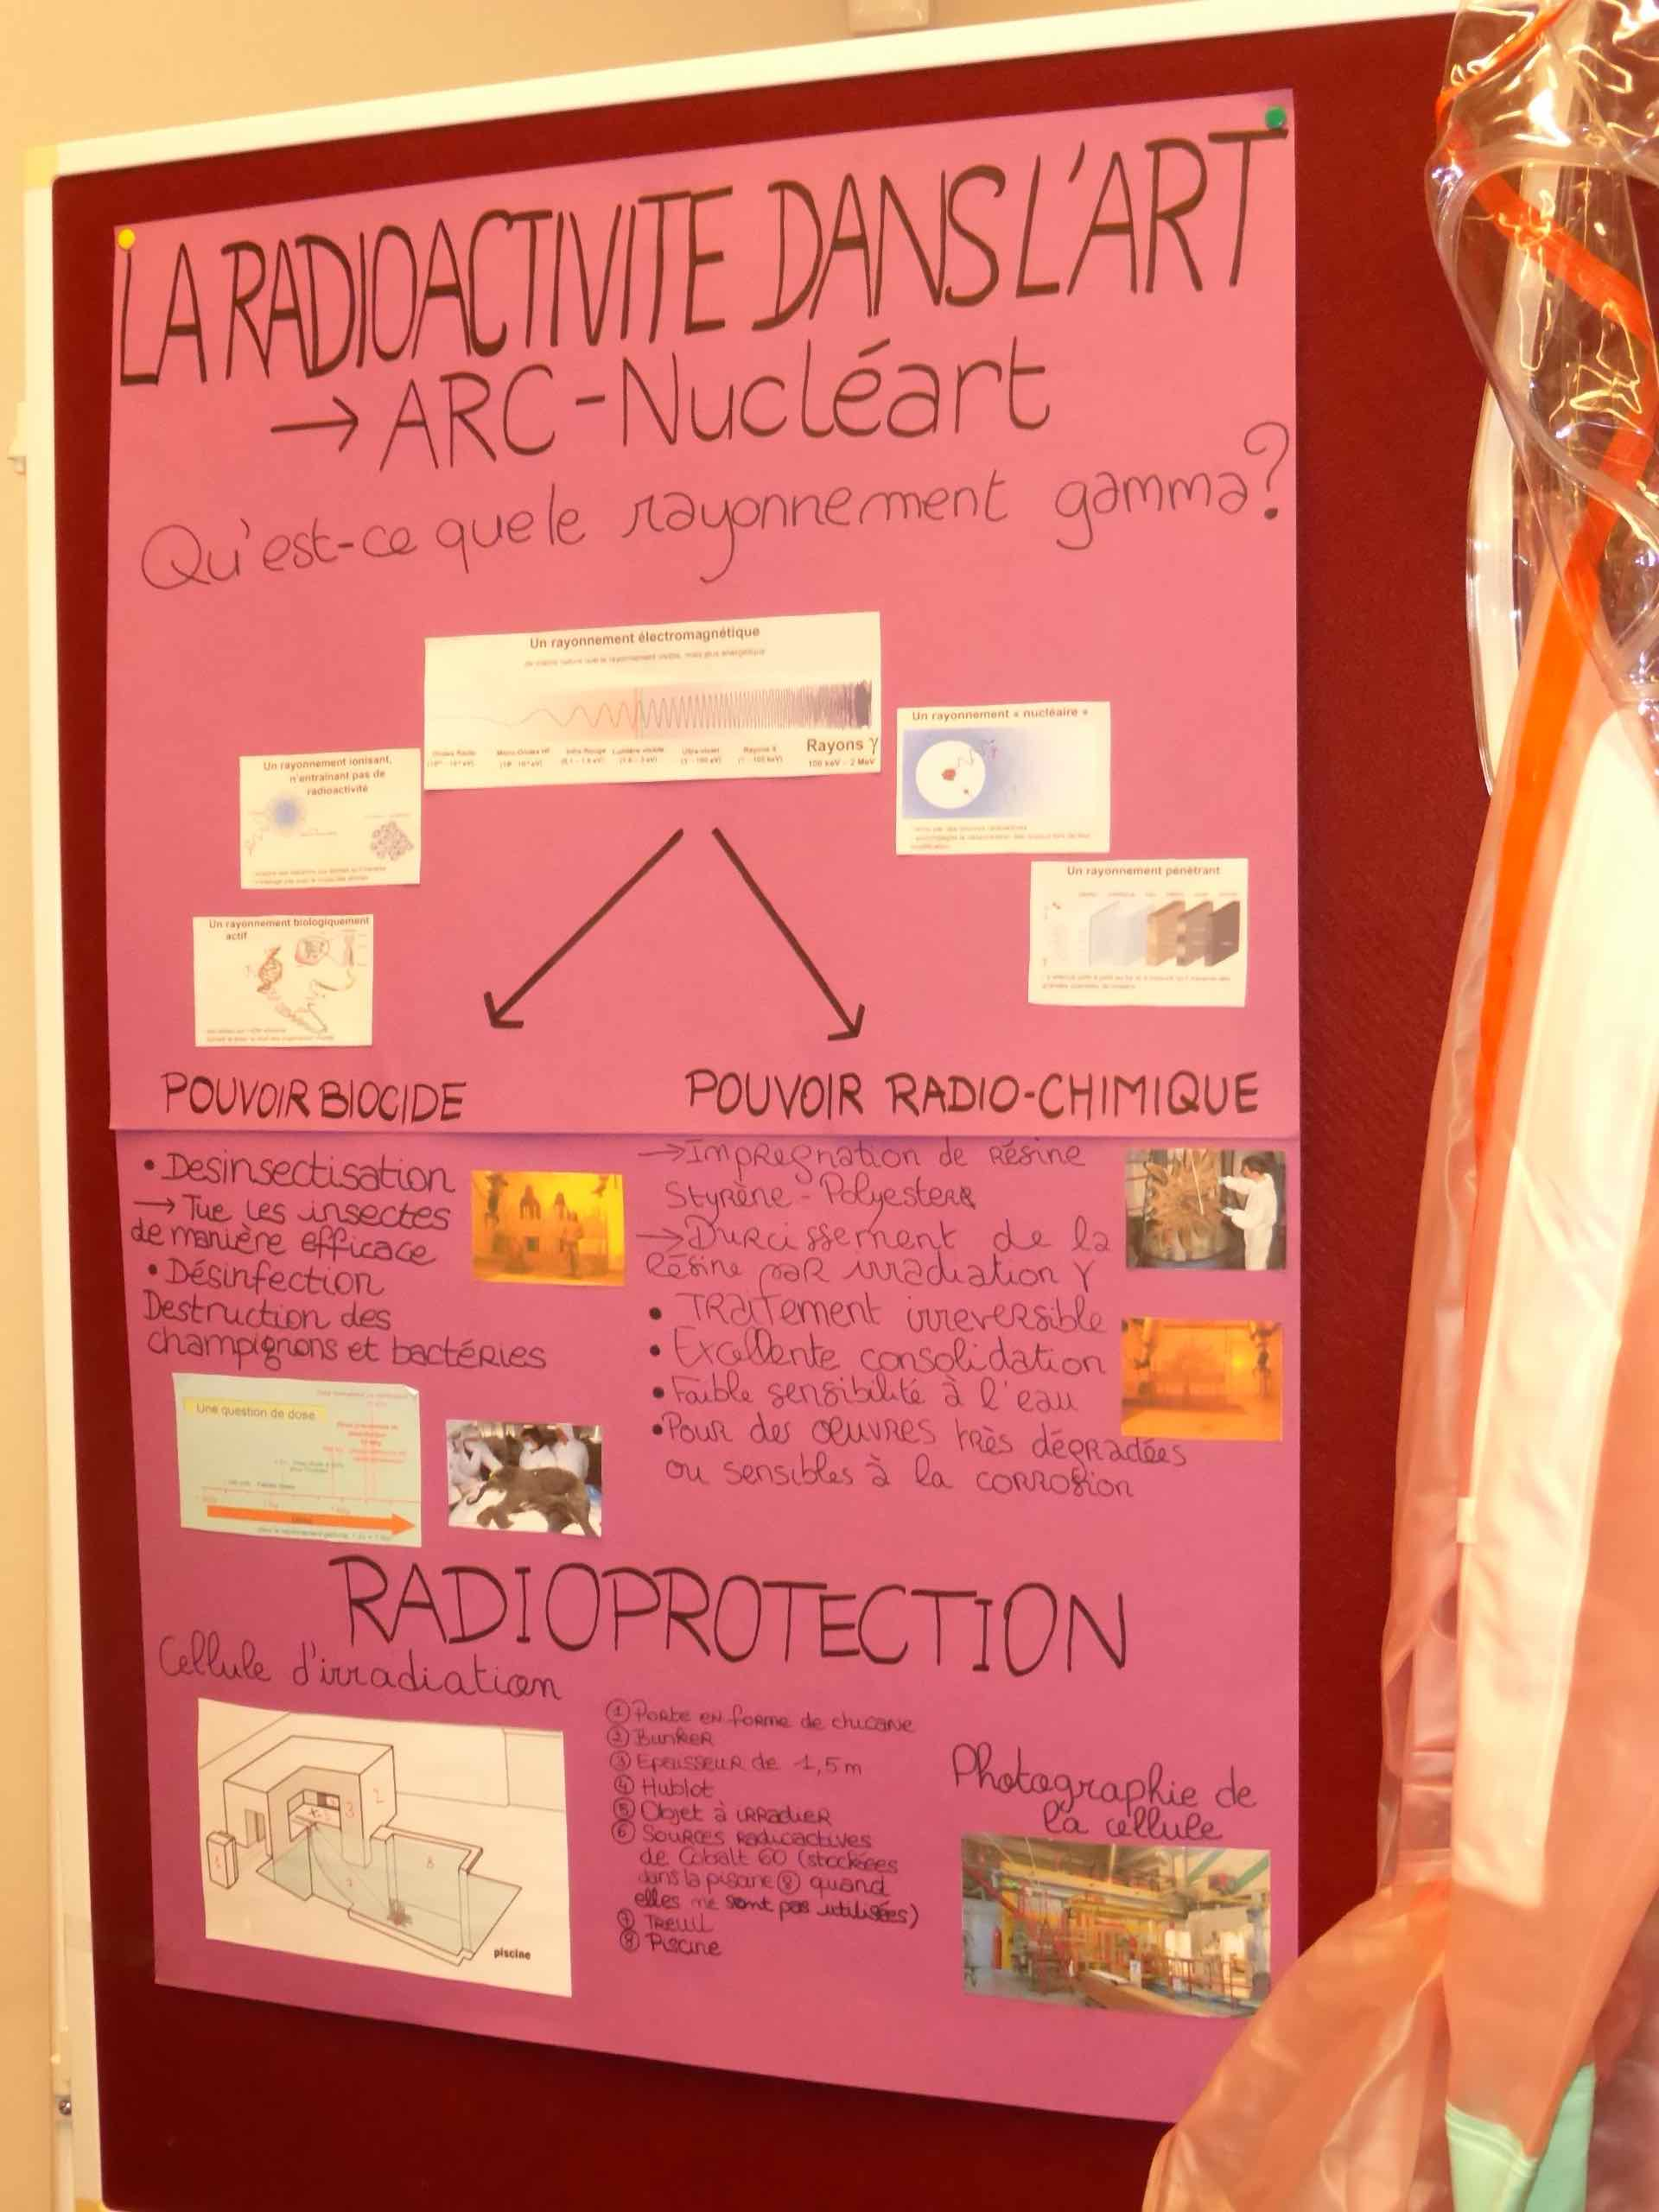 LA RADIOACTIVITE DANS L'ART
→ ARC-Nucléart
Qu'est-ce que le rayonnement gamma?
Un rayonnement électromagnétique
de même nature que le rayonnement visible, mais plus énergétique
Ondes Radio
Micro-Ondes HF
Infra Rouge
Lumière visible
Ultra-violet
Rayons X
Rayons γ
100 keV - 2 MeV
Un rayonnement ionisant,
n'entraînant pas de
radioactivité
Un rayonnement « nucléaire »
Un rayonnement biologiquement
actif
Un rayonnement pénétrant
POUVOIR BIOCIDE
• Desinsectisation
→ Tue les insectes
de manière efficace
• Désinfection
Destruction des
champignons et bactéries
Une question de dose
POUVOIR RADIO-CHIMIQUE
→ Impregnation de résine
Styrène - Polyester
→ Durcissement de la
résine par irradiation γ
• Traitement irreversible
• Excellente consolidation
• Faible sensibilité à l'eau
• Pour des œuvres très dégradées
ou sensibles à la corrosion
RADIOPROTECTION
Cellule d'irradiation
2
3
8
7
piscine
① Porte en forme de chicane
② Bunker
③ Epaisseur de 1,5 m
④ Hublot
⑤ Objet à irradier
⑥ Sources radioactives
de Cobalt 60 (stockées
dans la piscine ⑧ quand
elles ne sont pas utilisées)
⑦ Treuil
⑧ Piscine
Photographie de
la cellule